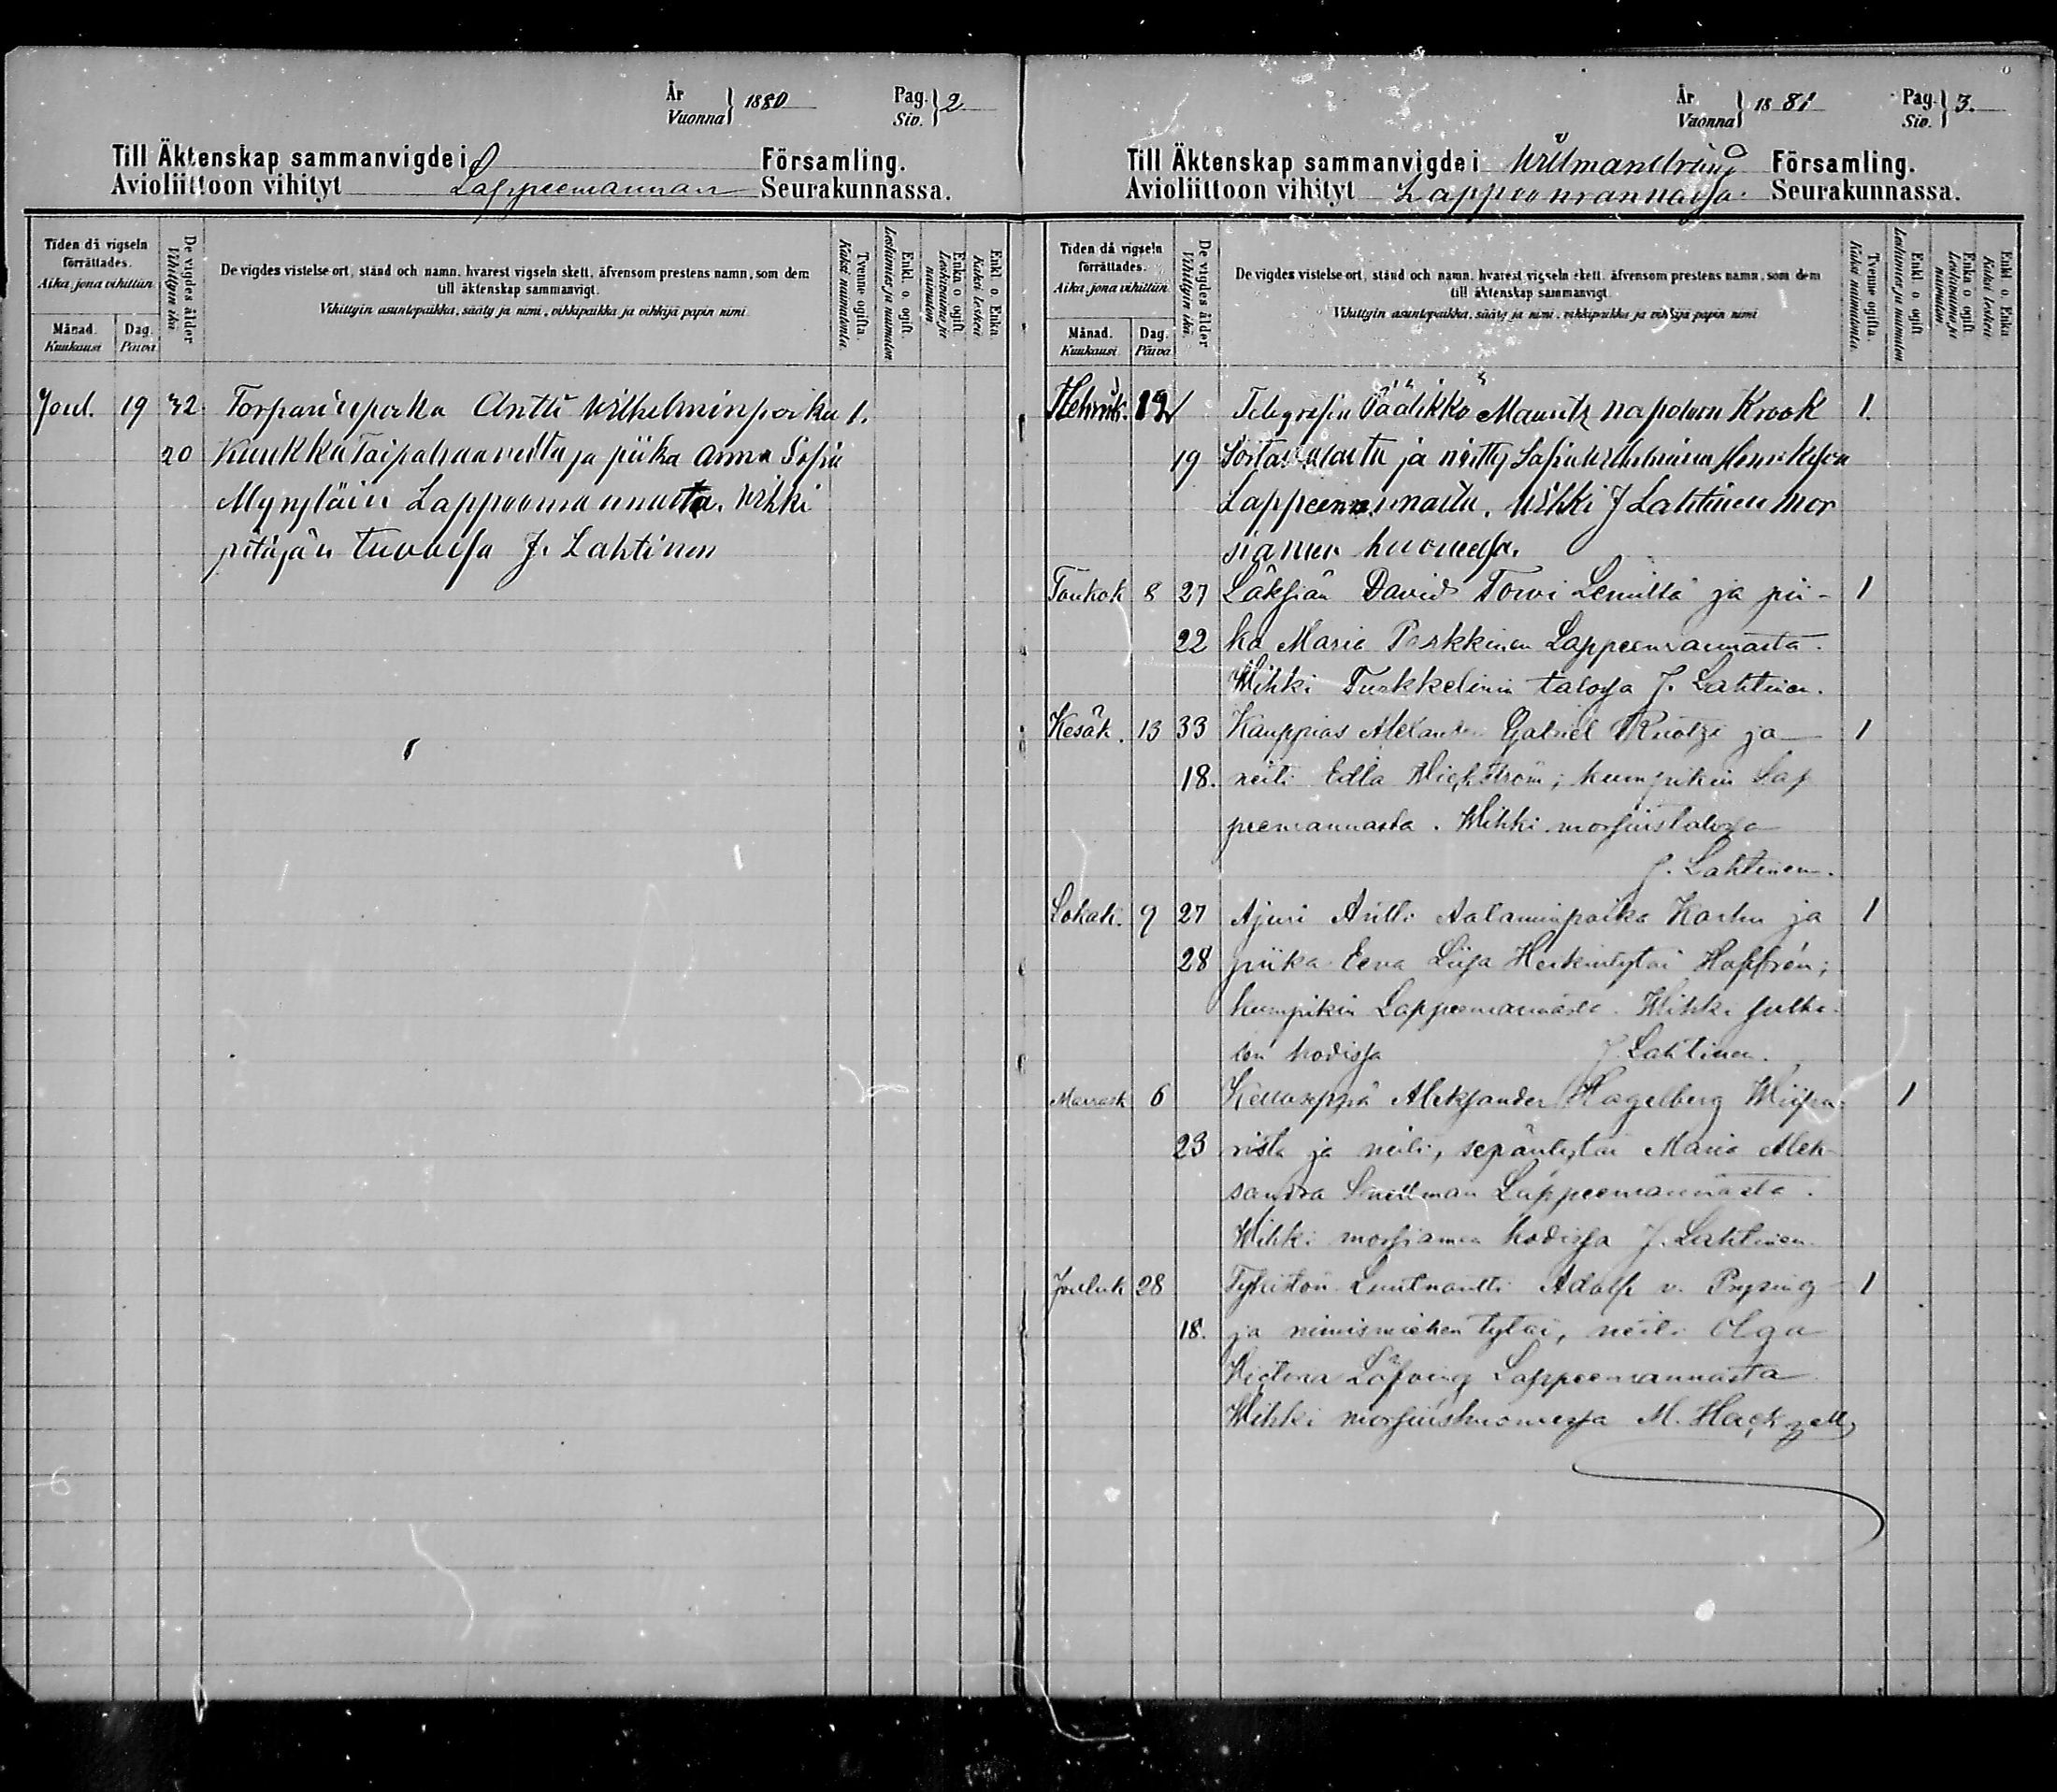 År
Vuonna } 1880
Pag.
Siv. } 2
Till Äktenskap sammanvigde i Församling.
Avioliittoon vihityt Lappeenrannan Seurakunnassa.
Tiden då vigseln förrättades.
Aika, jona vihittiin
Månad.
Kuukausi
Dag.
Päivä
De vigdes ålder
Vihittyin ikä
De vigdes vistelse ort, stånd och namn, hvarest vigseln skett, äfvensom prestens namn, som dem
till äktenskap sammanvigt.
Vihittyin asuntopaikka, sääty ja nimi, vihkipaikka ja vihkijä papin nimi
Tvenne ogifta.
Kaksi naimatonta.
Enkl. o. ogift.
Leskimies ja naimaton.
Enka o. ogift.
Leskivaimo ja naimaton
Enkl. o. Enka
Kaksi leskeä
Joul. 19 32 Torparinpoika Antti Wilhelminpoika 1.
20 Kuukka Taipalsaarelta ja piika Anna Sofia
Myyryläin Lappeenrannasta. Wihki
pitäjän tuvassa J. Lahtinen
År
Vuonna } 1881
Pag.
Siv. } 3.
Till Äktenskap sammanvigde i Wilmanstrand Församling.
Avioliittoon vihityt Lappeenrannassa. Seurakunnassa.
Tiden då vigseln förrättades.
Aika, jona vihittiin
Månad.
Kuukausi
Dag.
Päivä
De vigdes ålder
Vihittyin ikä.
De vigdes vistelse ort, stånd och namn, hvarest vigseln skett, äfvensom prestens namn, som dem
till äktenskap sammanvigt.
Vihittyin asuntopaikka, sääty ja nimi, vihkipaikka ja vihkijä papin nimi
Tvenne ogifta.
Kaksi naimatonta.
Enkl. o. ogift.
Leskimies ja naimaton.
Enka o. ogift.
Leskivaimo ja naimaton
Enkl. o. Enka
Kaksi leskeä
Helmik. 12 Telegrafin Päälikkö Mauritz Napoleon Krook 1.
19 Sortavalasta ja neitty Sofia Wilhelmina Henriksson
Lappeenrannasta. Wihki J Lahtinen mor
siamen huoneessa.
Toukok 8 27 Läksiän David Torvi Lemiltä ja pii- 1
22 ka Maria Parkkinen Lappeenrannasta.
Wihki Turkkelinin talossa J. Lahtinen.
Kesäk. 13 33 Kauppias Alexander Gabriel Ruotzi ja 1
18. neiti Edla Wickström; kumpikin Lap
peenrannasta. Wihki morsiustalossa
J. Lahtinen.
Lokak. 9 27 Ajuri Antti Aataminpoika Karhu ja 1
28 piika Eeva Liisa Heikintytär Haffrén;
kumpikin Lappeenrannasta. Wihki sulha-
sen kodissa J. Lahtinen.
Marrask 6 Kelloseppä Aleksander Hagelberg Wiipu- 1
23 rista ja neiti, sepäntytär Maria Alek-
sandra Snellman Lappeenrannasta.
Wihki morsiamen kodissa J. Lahtinen.
Jouluk 28 Tykistön Luutnantti Adolf v. Prysing 1
18. ja nimismiehen tytär, neiti Olga
Victoria Löfving Lappeenrannasta
Wihki morsiushuoneessa M. Hackzell